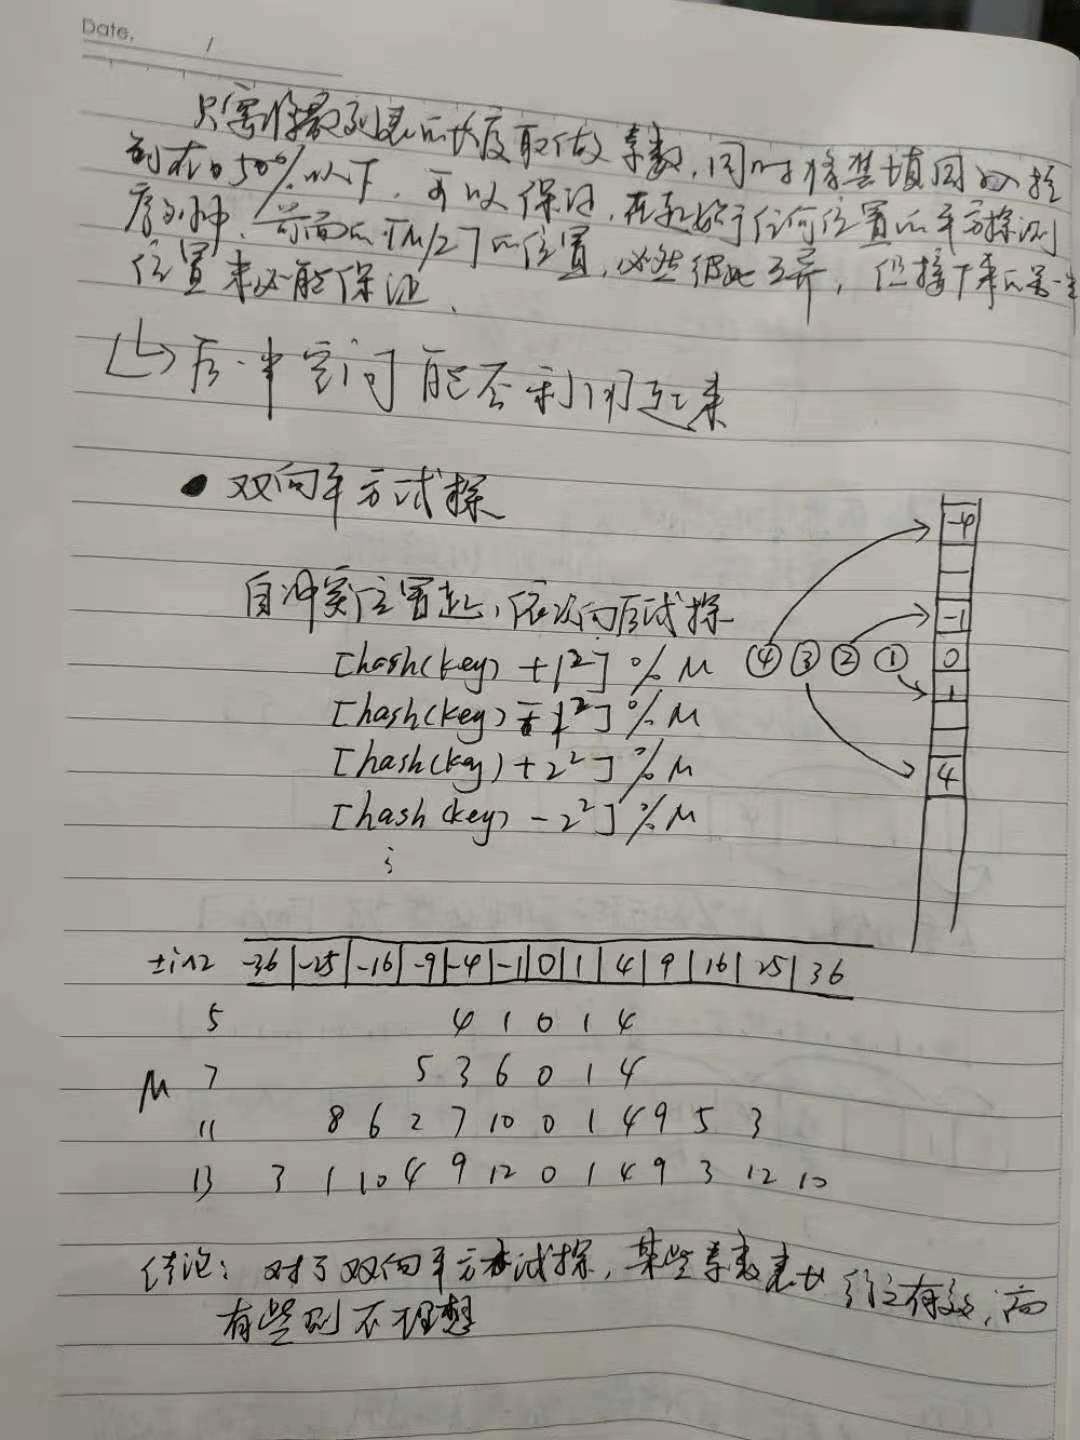 Date. /
只需将散列表的长度取做素数,同时将装填因子控
制在50%以下,可以保证,在起始于任何位置的平方探测
序列中,前面的⌈M/2⌉的位置,必然彼此互异,但接下来的另一半
位置未必能保证.
↳ 后半空间能否利用起来
● 双向平方试探
自冲突位置起,依次向后试探
[hash(key) + 1²] % M
[hash(key) - 1²] % M
[hash(key) + 2²] % M
[hash(key) - 2²] % M
⋮
-4
-1
④ ③ ② ① 0
1
4
±i^2 -36 -25 -16 -9 -4 -1 0 1 4 9 16 25 36
5 4 1 0 1 4
M 7 5 3 6 0 1 4
11 8 6 2 7 10 0 1 4 9 5 3
13 3 1 10 4 9 12 0 1 4 9 3 12 10
结论: 对于双向平方试探,某些素数表长 有效,而
有些则不理想